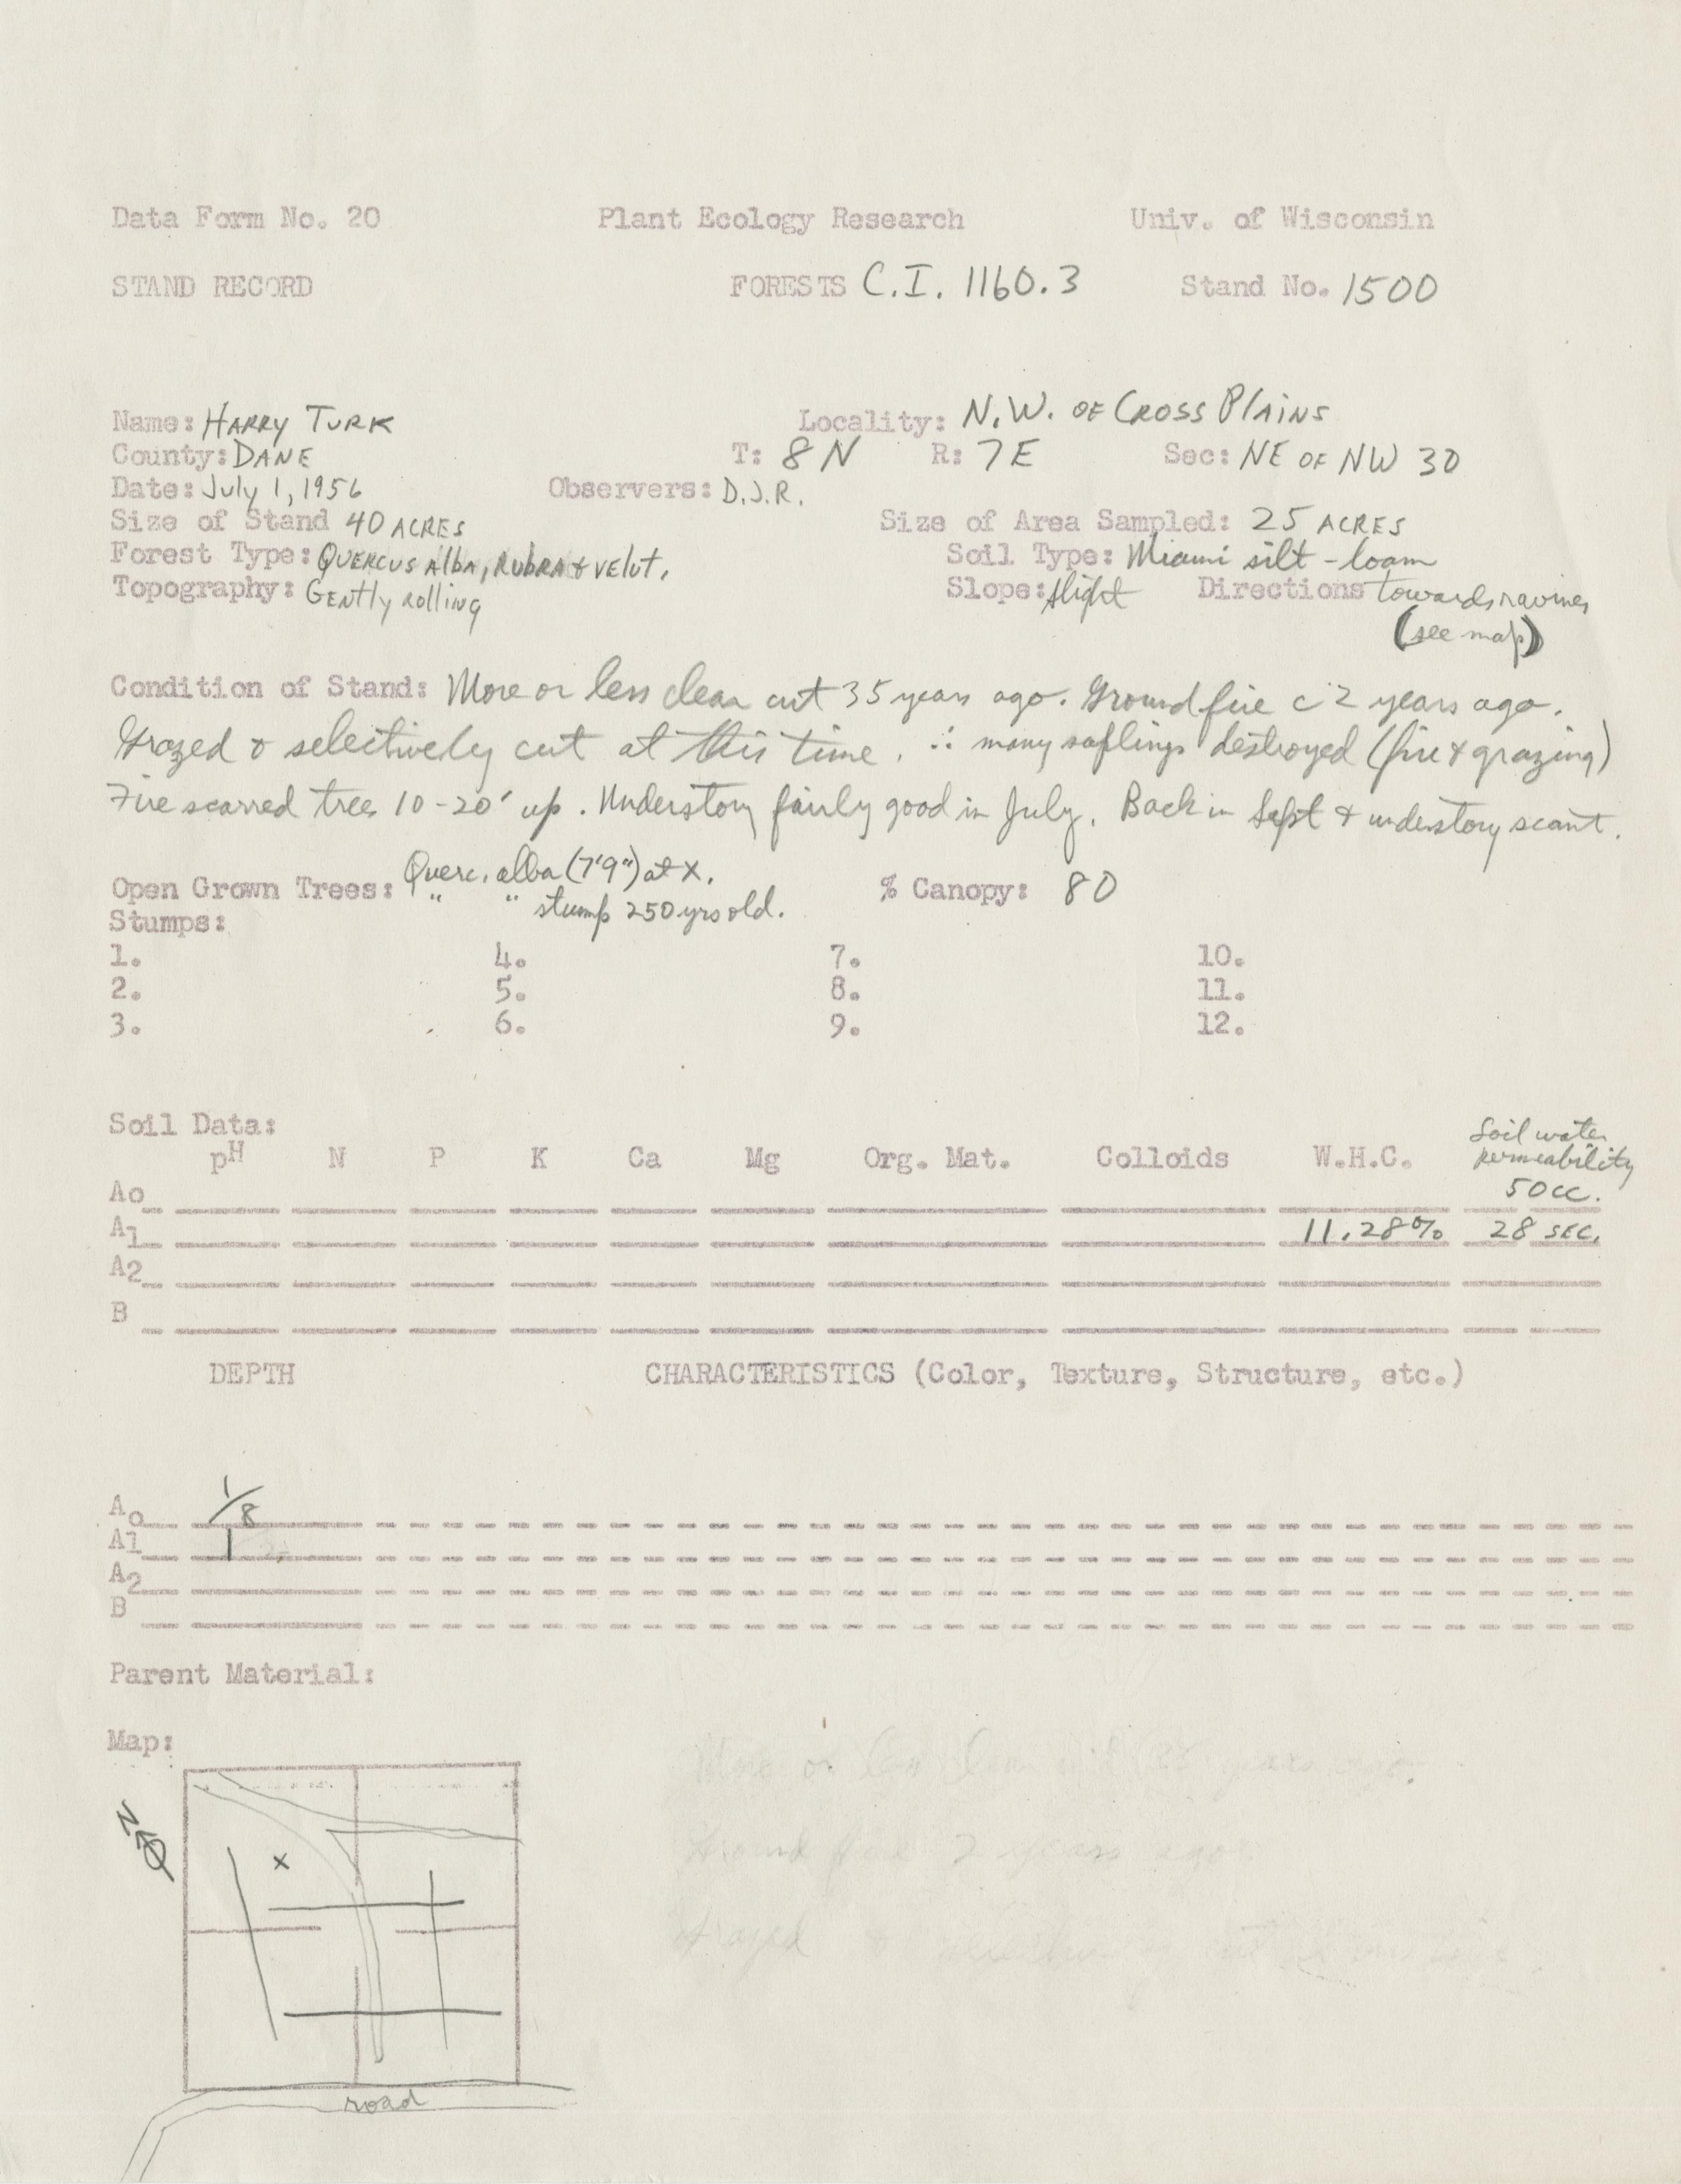 Data Form No. 20 Plant Ecology Research Univ. of Wisconsin
STAND RECORD FORESTS C.I. 1160.3 Stand No. 1500
Name: HARRY TURK Locality: N.W. OF CROSS PLAINS
County: DANE T: 8N R: 7E Sec: NE OF NW 30
Date: July 1, 1956 Observers: D.J.R.
Size of Stand 40 ACRES Size of Area Sampled: 25 ACRES
Forest Type: QUERCUS Alba, RUBRA & VElut. Soil Type: Miami silt-loam
Topography: GENtly Rolling Slope: slight Directions towards ravines
(see map)
Condition of Stand: More or less clear cut 35 years ago. Ground fire c 2 years ago.
Grazed & selectively cut at this time. ∴ many saplings destroyed (fire & grazing)
Fire scarred trees 10-20' up. Understory fairly good in July. Back in Sept & understory scant.
Open Grown Trees: Querc. alba (7'9") at X. % Canopy: 80
" " stump 250 yrs old.
Stumps:
1. 4. 7. 10.
2. 5. 8. 11.
3. 6. 9. 12.
Soil Data:
pH N P K Ca Mg Org. Mat. Colloids W.H.C. Soil water permeability
Ao 50cc.
A1 11.28% 28 SEC.
A2
B
DEPTH CHARACTERISTICS (Color, Texture, Structure, etc.)
Ao 1/8
A1 1
A2
B
Parent Material:
Map:
More or less clear cut 35 years ago.
Ground fire 2 years ago
Grazed & selectively cut at this time
N
X
road